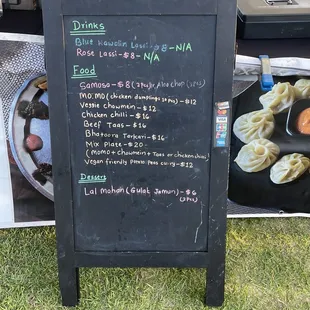 Drinks
Blut Kawolin Lassi - $8 - N/A
Rose Lassi - $8 - N/A
Food
Samosa - $8 (2Pcs) or Aloo chop (2Pcs)
MO:MO (chicken dumplings 10 Pcs) - $12
Veggie chowmein - $12
Chicken chilli - $16
Beef Taas - $16
Bhatoora Tarkari - $16
Mix Plate - $20
(momo + chowmein + Taas or chicken chilli)
Vegan friendly Potato Peas curry - $12
Dessers
Lal Mohan (Gulab Jamun) - $6
(2Pcs)